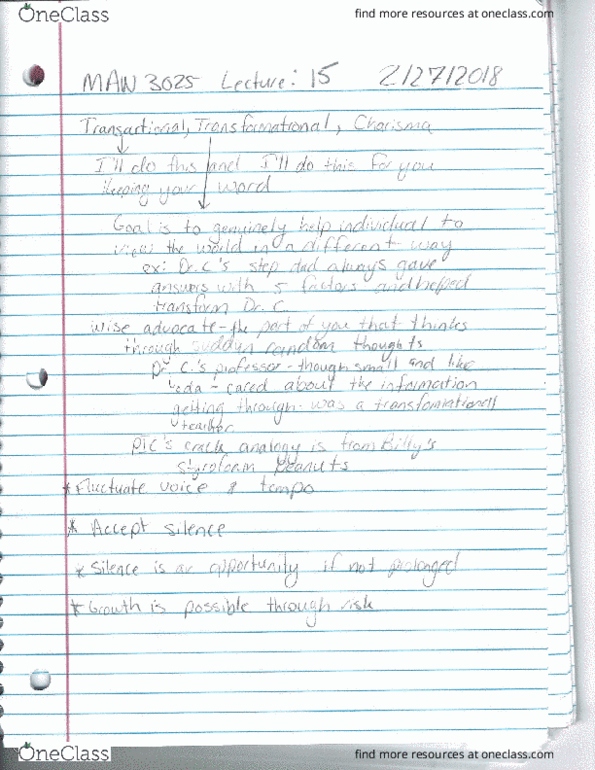 OneClass
find more resources at oneclass.com
MAN 3025 Lecture: 15 2/27/2018
Transactional, Transformational, Charisma
I'll do this and I'll do this for you
keeping your word
Goal is to genuinely help individual to
view the world in a different way
ex: Dr. C's step dad always gave
answers with 5 factors and helped
transform Dr. C.
wise advocate - the part of you that thinks
through sudden random thoughts
Dr. C.'s professor - though small and like
cared about the information
getting through - was a transformational
teacher
crack analogy is from Billy's
styrofoam peanuts
* Fluctuate voice & tempo
* Accept silence
* Silence is an opportunity if not prolonged
* Growth is possible through risk
OneClass
find more resources at oneclass.com